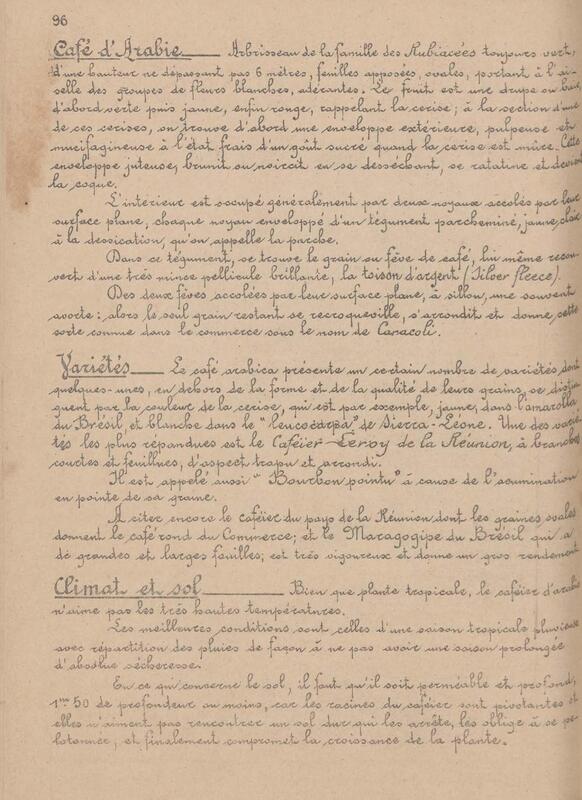 96
Café d'Arabie Arbrisseau de la famille des Rubiacées toujours vert,
d'une hauteur ne dépassant pas 6 mètres, feuilles opposées, ovales, portant à l'ais-
selle des groupes de fleurs blanches, odorantes. Le fruit est une drupe ou baie,
d'abord verte puis jaune, enfin rouge, rappelant la cerise; à la section d'une
de ces cerises, on trouve d'abord une enveloppe extérieure, pulpeuse et
mucilagineuse à l'état frais d'un goût sucré quand la cerise est mûre. Cette
enveloppe juteuse, brunit ou noircit en se desséchant, se ratatine et devient
la coque.
L'intérieur est occupé généralement par deux noyaux accolés par leur
surface plane, chaque noyau enveloppé d'un tégument parcheminé, jaune, clair
à la dessication, qu'on appelle la parche.
Dans ce tégument, se trouve le grain ou fève de café, lui même recou-
vert d'une très mince pellicule brillante, la toison d'argent (Silver fleece).
Des deux fèves accolées par leur surface plane, à sillon, une souvent
avorte: alors le seul grain restant se recroqueville, s'arrondit et donne, cette
sorte connue dans le commerce sous le nom de Caracoli.
Variétés Le café arabica présente un certain nombre de variétés dont
quelques-unes, en dehors de la forme et de la qualité de leurs grains, se distin-
guent par la couleur de la cerise, qui est par exemple, jaune, dans l'amarella
du Brésil et blanche dans le "leucocarpa" de Sierra-Léone. Une des varié-
tés les plus répandues est le Caféier Leroy de la Réunion, à branches
courtes et feuillues, d'aspect trapu et arrondi.
Il est appelé aussi "Bourbon pointu" à cause de l'acumination
en pointe de sa graine.
A citer encore le caféier du pays de la Réunion dont les graines ovales
donnent le café rond du Commerce; et le Maragogipe du Brésil qui a
de grandes et larges feuilles; est très vigoureux et donne un gros rendement
Climat et sol Bien que plante tropicale, le caféier d'arabie
n'aime pas les très hautes températures.
Les meilleures conditions sont celles d'une saison tropicale pluvieuse
avec répartition des pluies de façon à ne pas avoir une saison prolongée
d'absolue sécheresse.
En ce qui concerne le sol, il faut qu'il soit perméable et profond,
1m 50 de profondeur au moins, car les racines du caféier sont pivotantes et
elles n'aiment pas rencontrer un sol dur qui les arrête, les oblige à se pe-
lotonner, et finalement compromet la croissance de la plante.